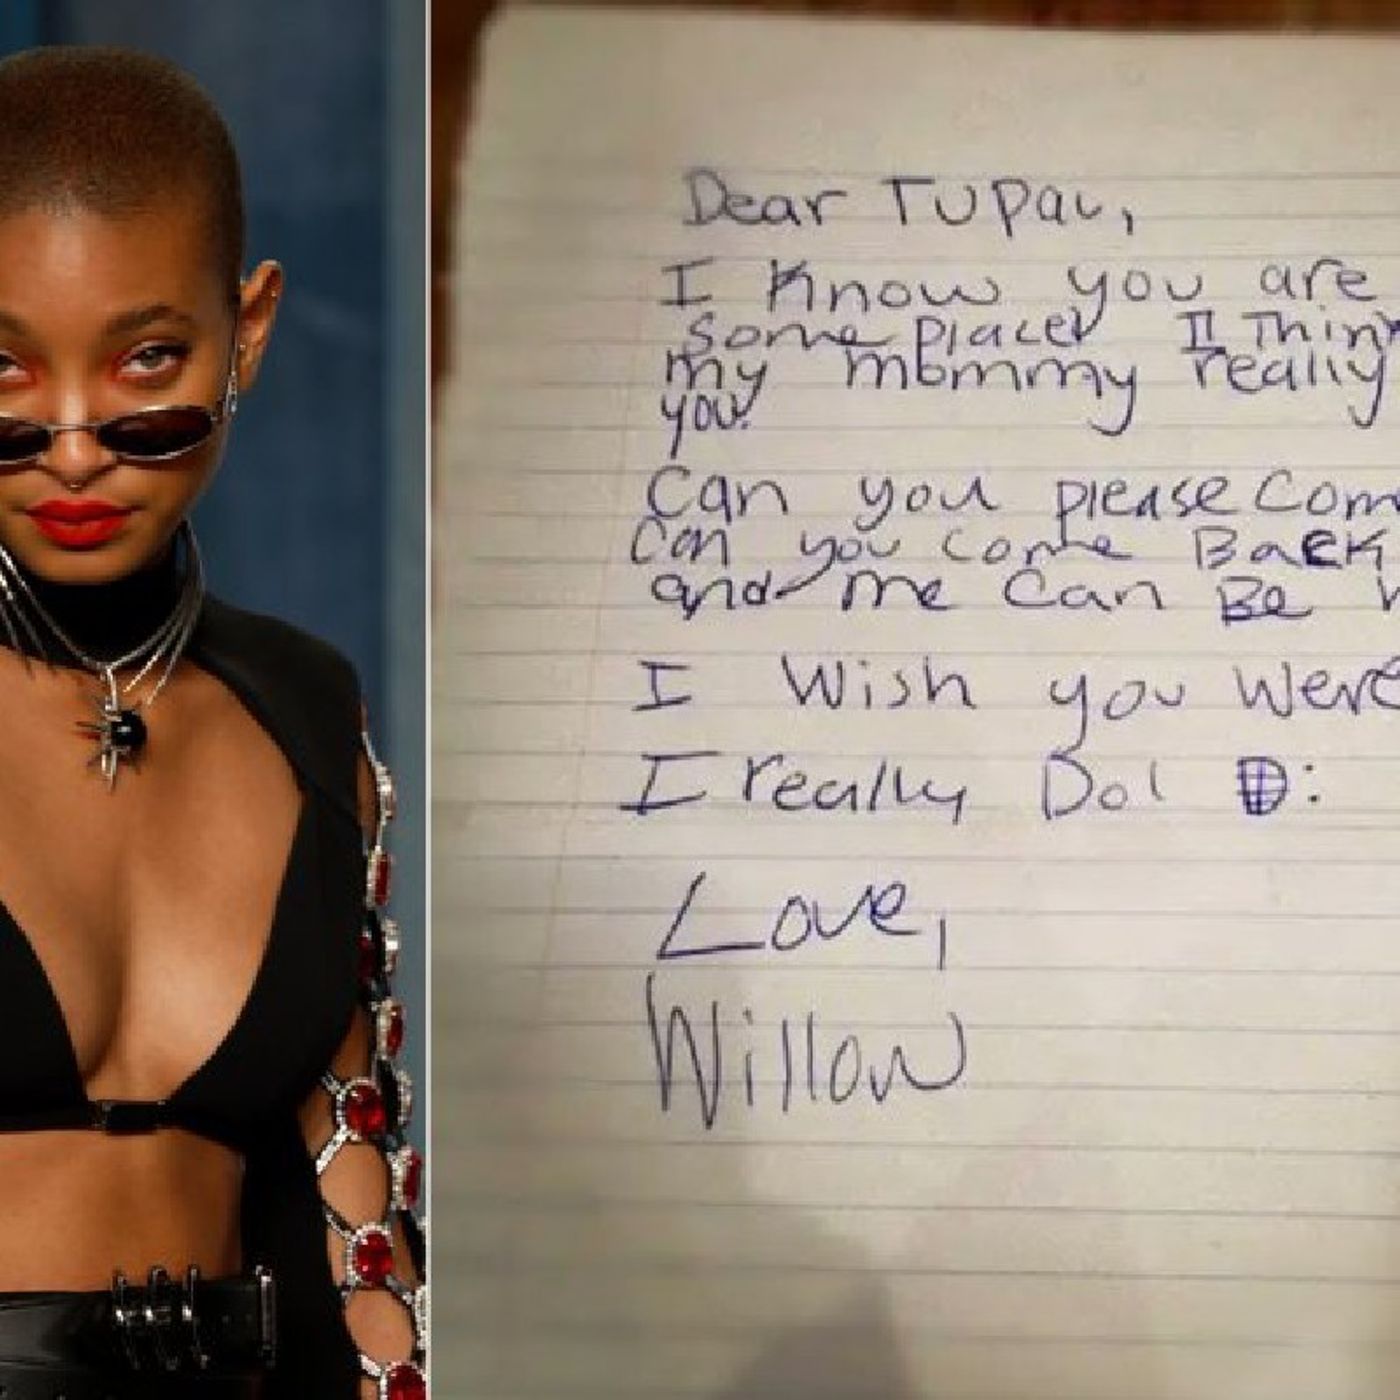 Dear TUPac,
I Know you are
some place I Think
my mommy really
you.
Can you please Com
Can you come Back
and me Can Be
I Wish you Were
I really Do!
Love,
Willow